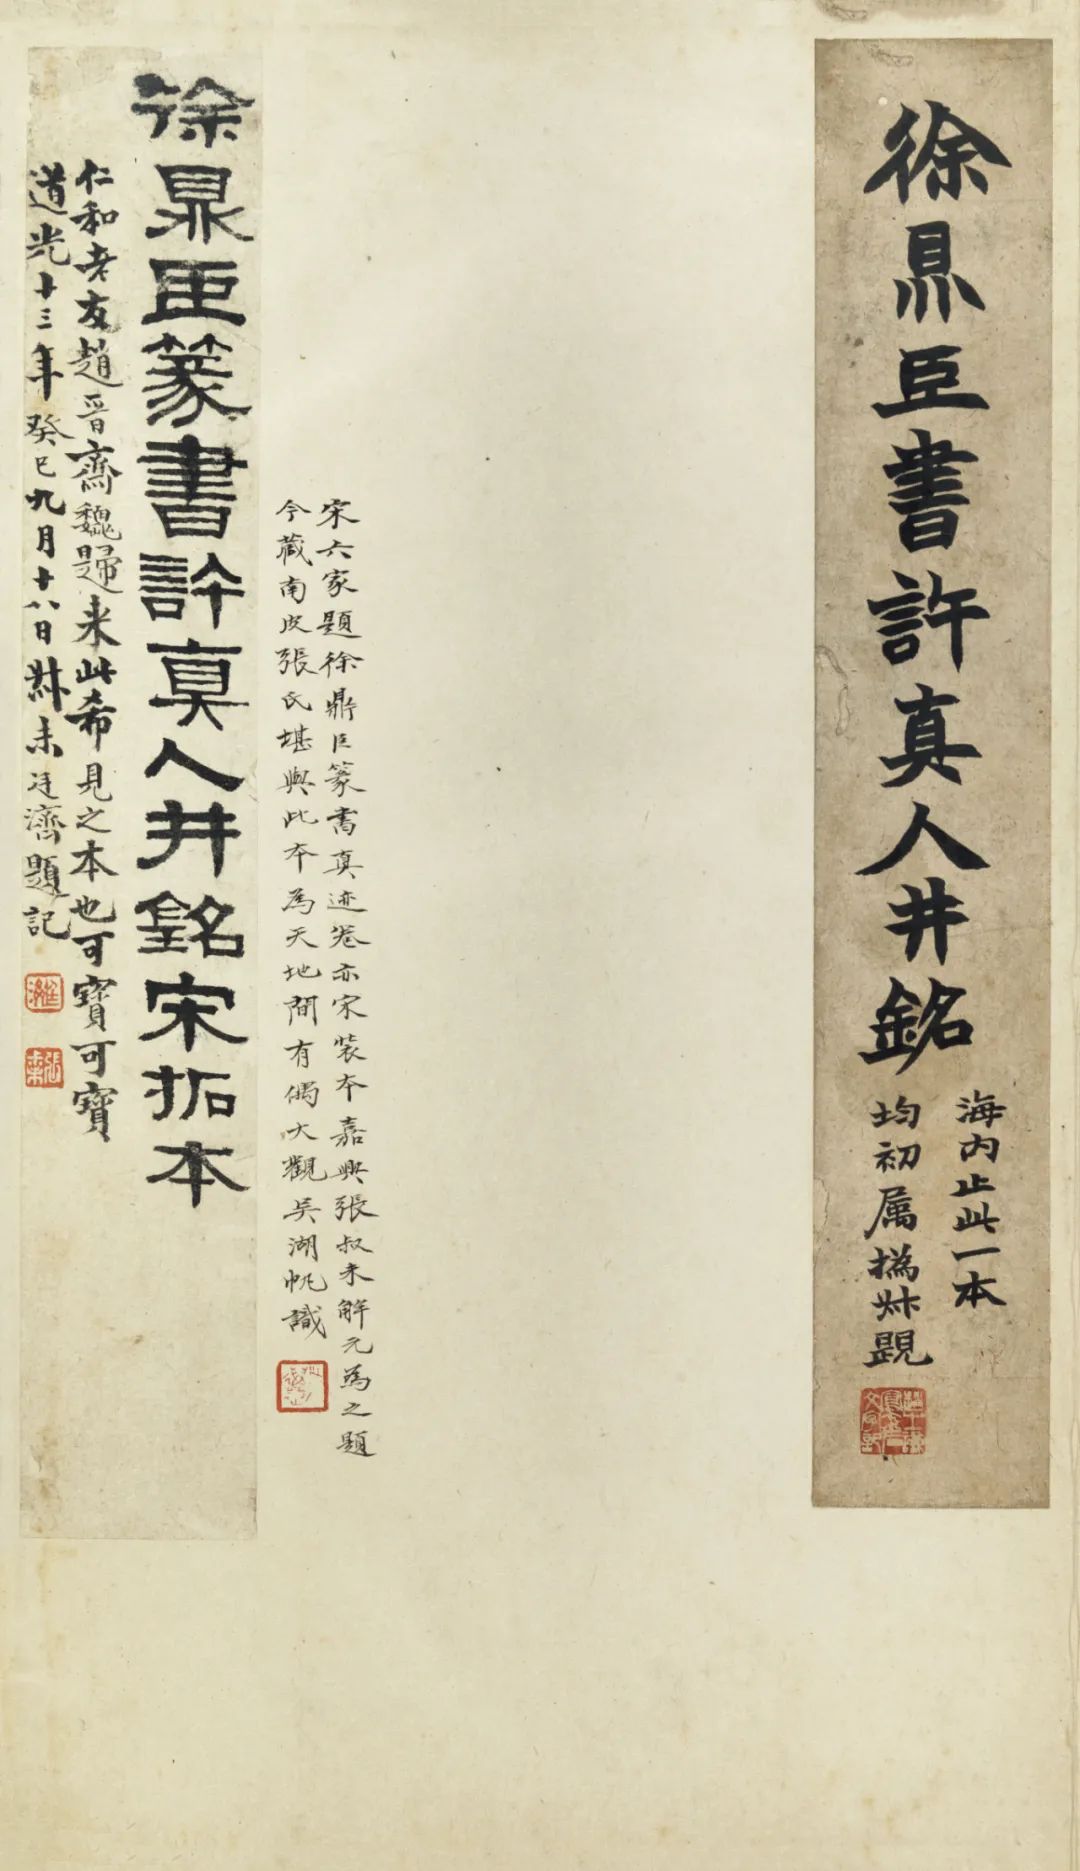 徐鼎臣書許真人井銘
海内止此一本
均初属撝叔題
宋六家題徐鼎臣篆書真迹卷亦宋裝本嘉興張叔未解元為之題
今藏南皮張氏堪與此本為天地間有偶大觀吳湖帆識
徐鼎臣篆書許真人井銘宋拓本
仁和老友趙晋齋魏歸来此希見之本也可寶可寶
道光十三年癸巳九月十八日叔未廷濟題記
廷濟
張叔未